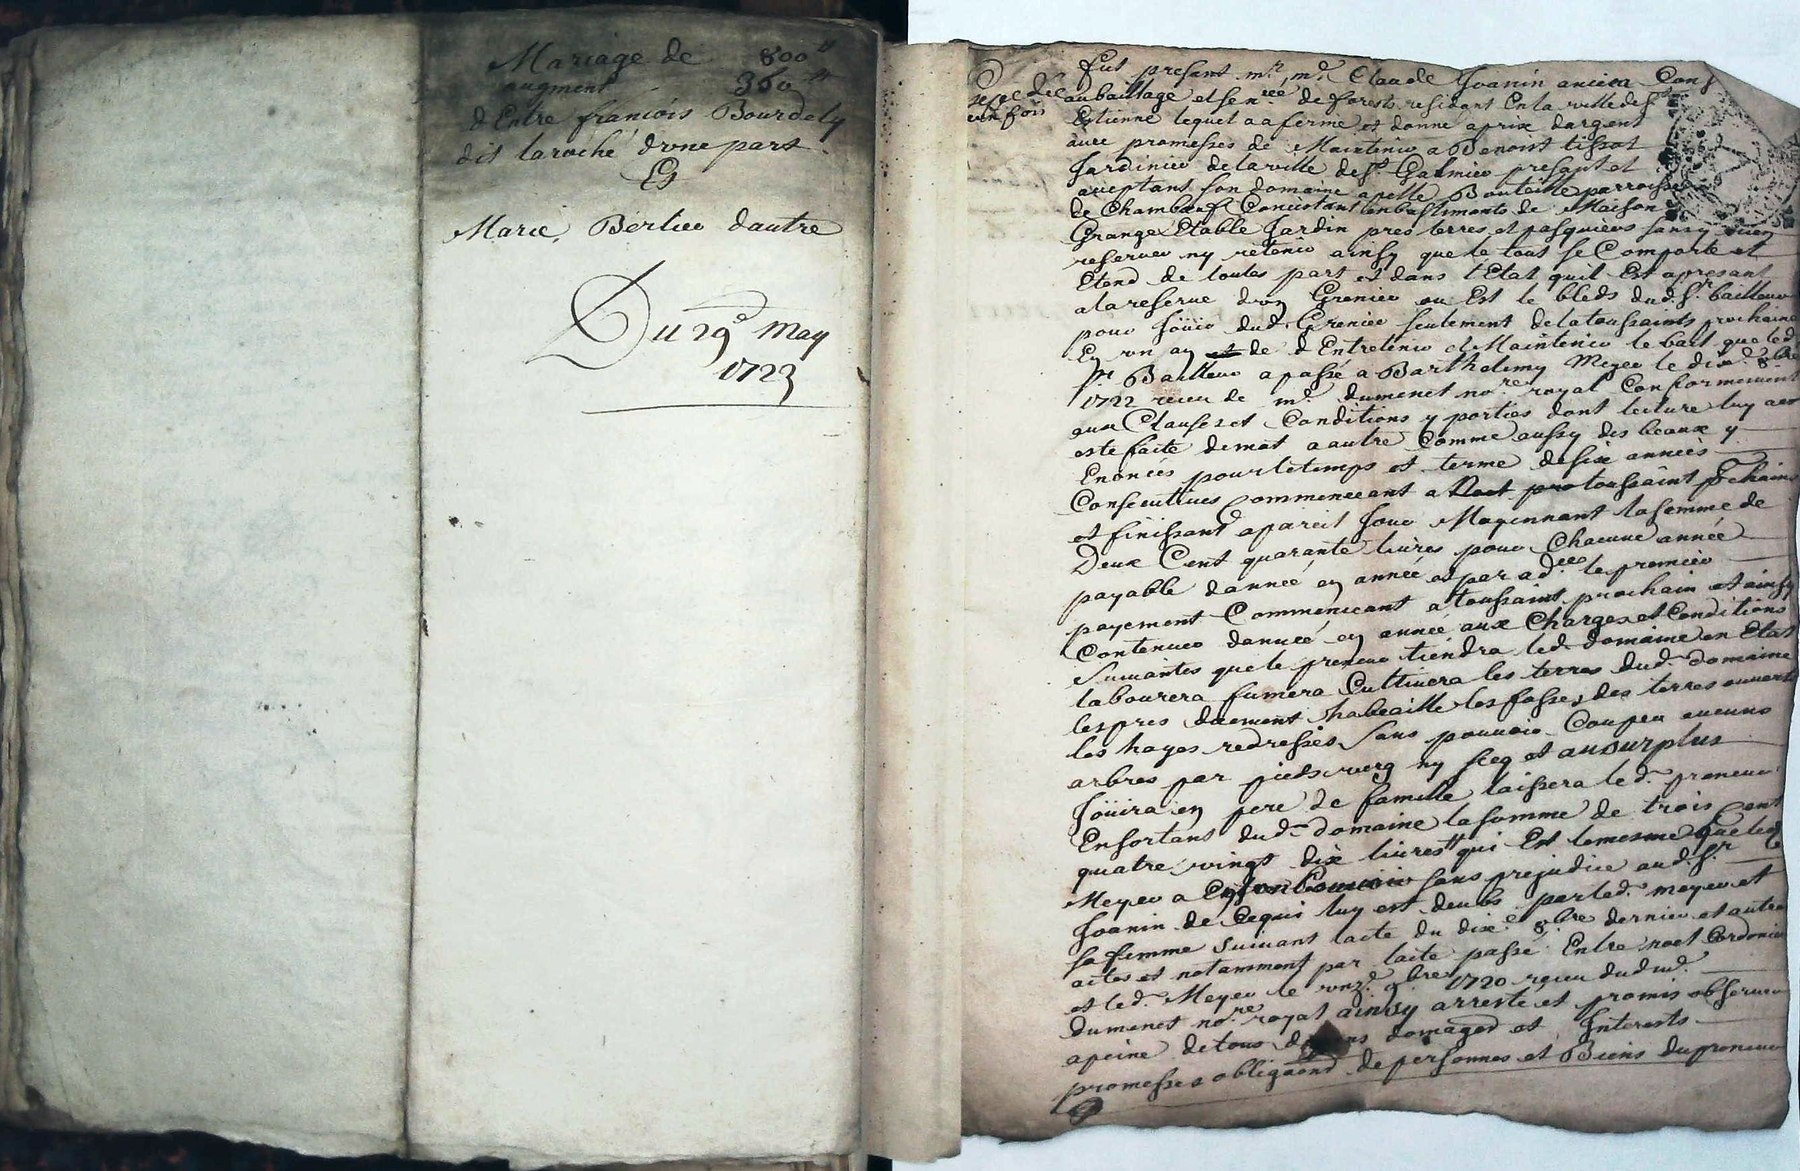 Mariage de 800ᵗᵗ
augment 360ᵗᵗ
d Entre francois Bourdely
dit laroche d'vne part
Et
Marie Bertier dautre
Du 29ᵉ May
1723
fut presant mʳ mᵉ Claude Joanin ancien Conˢ
au bailliage et senᶜᵉᵉ de forest residant En la ville de Sᵗ
Estienne lequel a aferme et donne a prix dargent
avec promesses de Maintenir a Benoist tissot
Jardinier de la ville de Sᵗ Galmier presant et
aceptant son domaine apelle Bouteille parroisse
de Chambœuf Concistant en bastiments de Maison
Grange Etable Jardin pres terres et pasquiers sans y rien
reserver ny retenir ainsy que le tout se Comporte et
Etend de toutes part et dans l'Etat quil Est apresant
a la reserve d'vn Grenier ou Est le bleds dud. Sʳ bailleur
pour Joüir dud. Grenier seulement de la toussaints prochaine
En vn an et de d Entretenir et Maintenir le bail que led.
Sʳ Bailleur a passé a Barthelemy Meyer le dix.ᵉ 8.bre
1722 receu de mᵉ dumenet noʳᵉ royal Conformement
aux Clauses et Conditions y portées dont lecture luy a
este faite de mot a autre Comme aussy des beaux y
Enoncés pour le temps et terme de six années
Consecutives Commencant a toussaint pchaine
et finissant a pareil Jour Moyennant la somme de
Deux Cent quarante livres pour Chacune année
payable d'année en année et par adᶜᵉᵉ le premier
payement Commencant a toussaint prochain et ainsy
Continuer dannée en année aux Charges et Conditions
Suivantes que le preneur tiendra led. domaine en Etat
labourera fumera Cultivera les terres dud. domaine
les pres duement les fosses des terres ouverts
les hayes redressés sans pouvoir Couper aucuns
arbres par pieds verg ny secq et au surplus
Joüira en pere de famille laissera led. preneur
En sortant dud. domaine la somme de trois Cent
quatre vingt dix livres qui Est le mesme que led.
Meyer a En son sans prejudice aud. Sʳ
Joanin de Cequi luy est deubs par led. meyer et
sa femme suivant lacte du dix.ᵉ 8.bre dernier et autre
actes et notamment par lacte passé Entre noel Cordonier
et led. Meyer le vnz.ᵉ 9.bre 1720 receu dud mᵉ.
dumenet noʳᵉ royal ainsy arreste et promis observer
a peine de tous domages et Interests
promesses obligaond de personnes et Biens du preneur